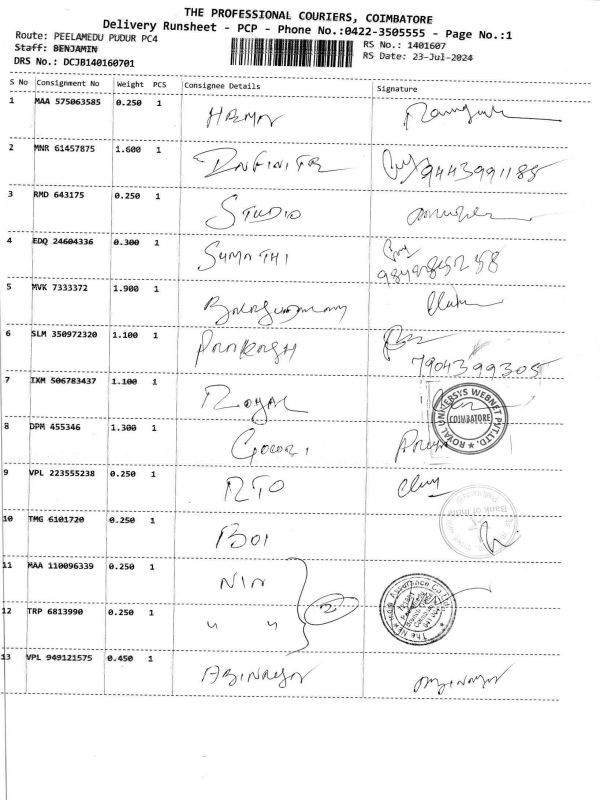 THE PROFESSIONAL COURIERS, COIMBATORE
Delivery Runsheet - PCP - Phone No.:0422-3505555 - Page No.:1
Route: PEELAMEDU PUDUR PC4
Staff: BENJAMIN
DRS No.: DCJB140160701
RS No.: 1401607
RS Date: 23-Jul-2024
S No Consignment No Weight PCS Consignee Details Signature
1 MAA 575063585 0.250 1
2 MNR 61457875 1.600 1 9443991185
3 RMD 643175 0.250 1 STUDIO
4 EDQ 24604336 0.300 1 SUMATHI
5 MVK 7333372 1.900 1
6 SLM 350972320 1.100 1 7904399305
7 IXM 506783437 1.100 1 ROYAL ROYAL UNIVERSYS WEBNET PVT.LTD. COIMBATORE
8 DPM 455346 1.300 1 GOWRI
9 VPL 223555238 0.250 1 RTO
10 TMG 6101720 0.250 1 BOI Bank of India
11 MAA 110096339 0.250 1 NIA
12 TRP 6813990 0.250 1 " " 2 The New India Assurance Co. Ltd.
13 VPL 949121575 0.450 1 ABINAYA ABINAYA